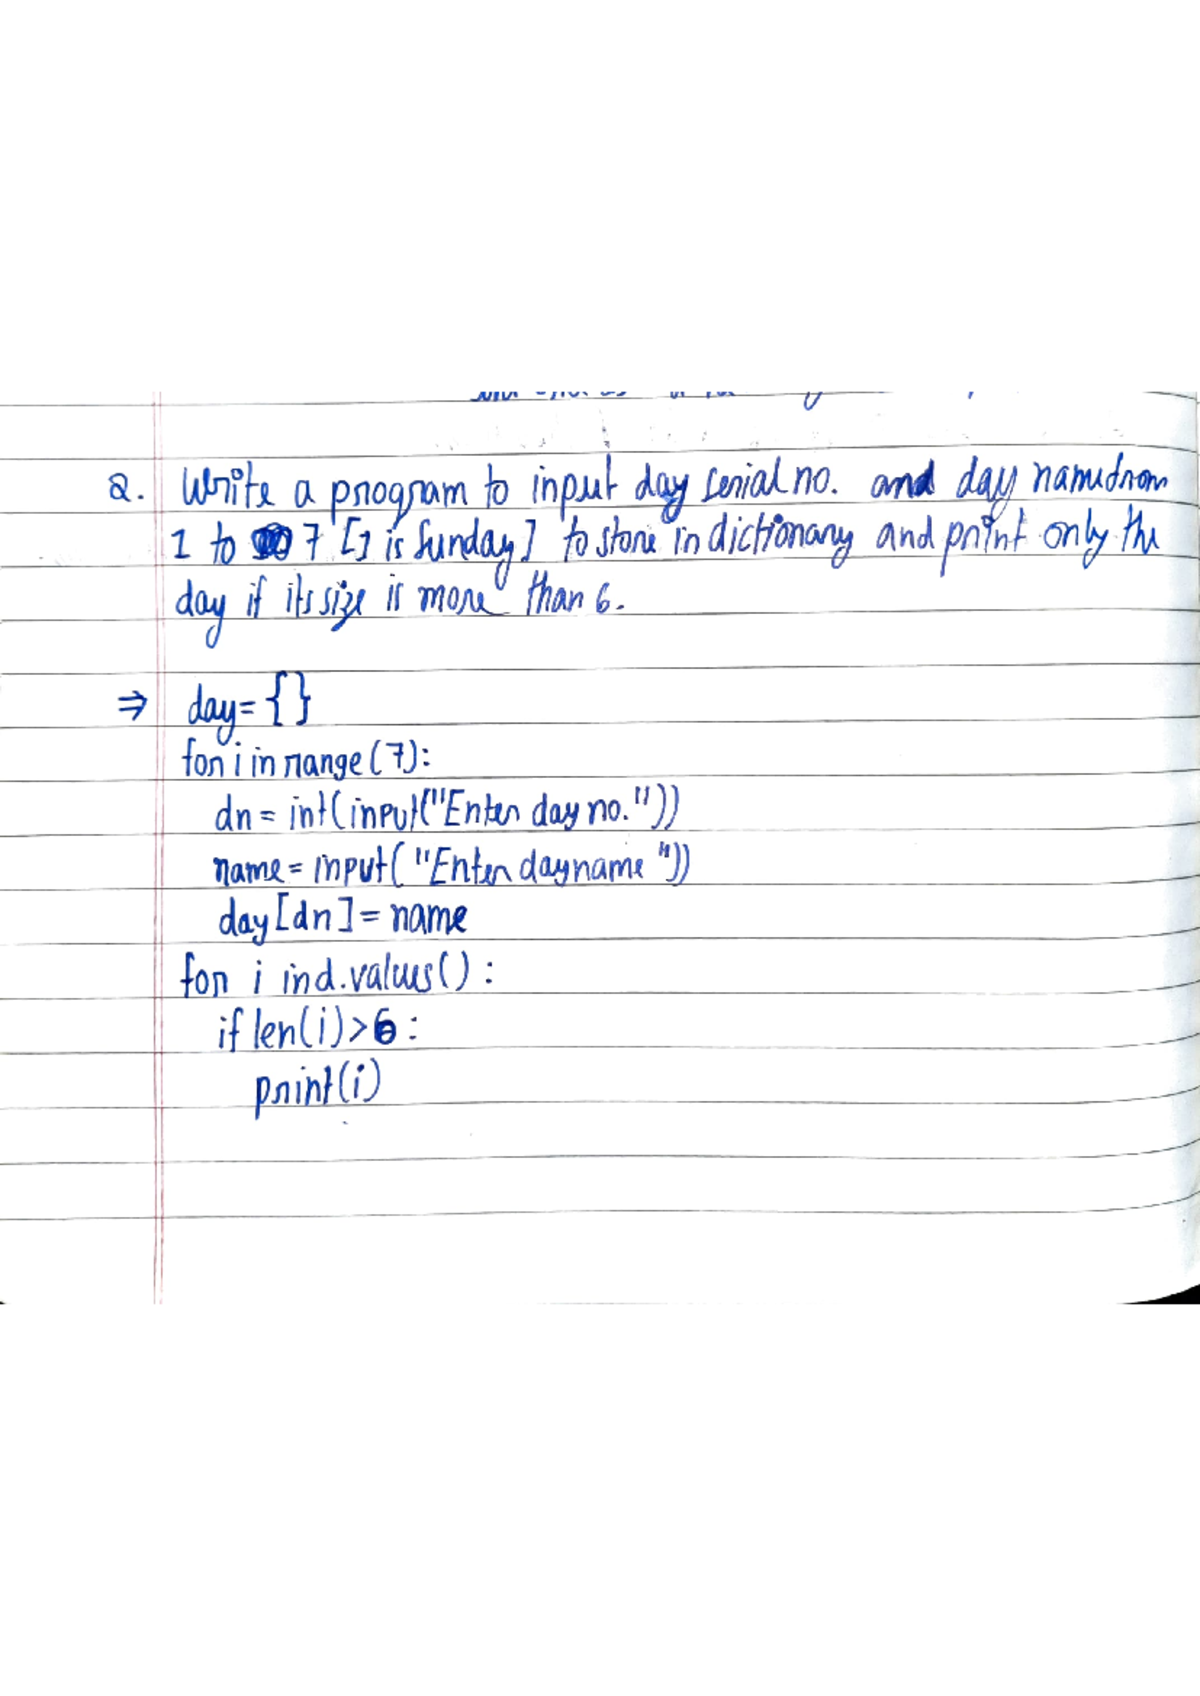 2. Write a program to input day serial no. and day name from
1 to 7 [1 is Sunday] to store in dictionary and print only the
day if its size is more than 6.
⇒ day = {}
for i in range (7):
dn = int(input("Enter day no."))
name = input( "Enter day name "))
day [dn] = name
for i in d.values() :
if len(i)>6 :
print(i)